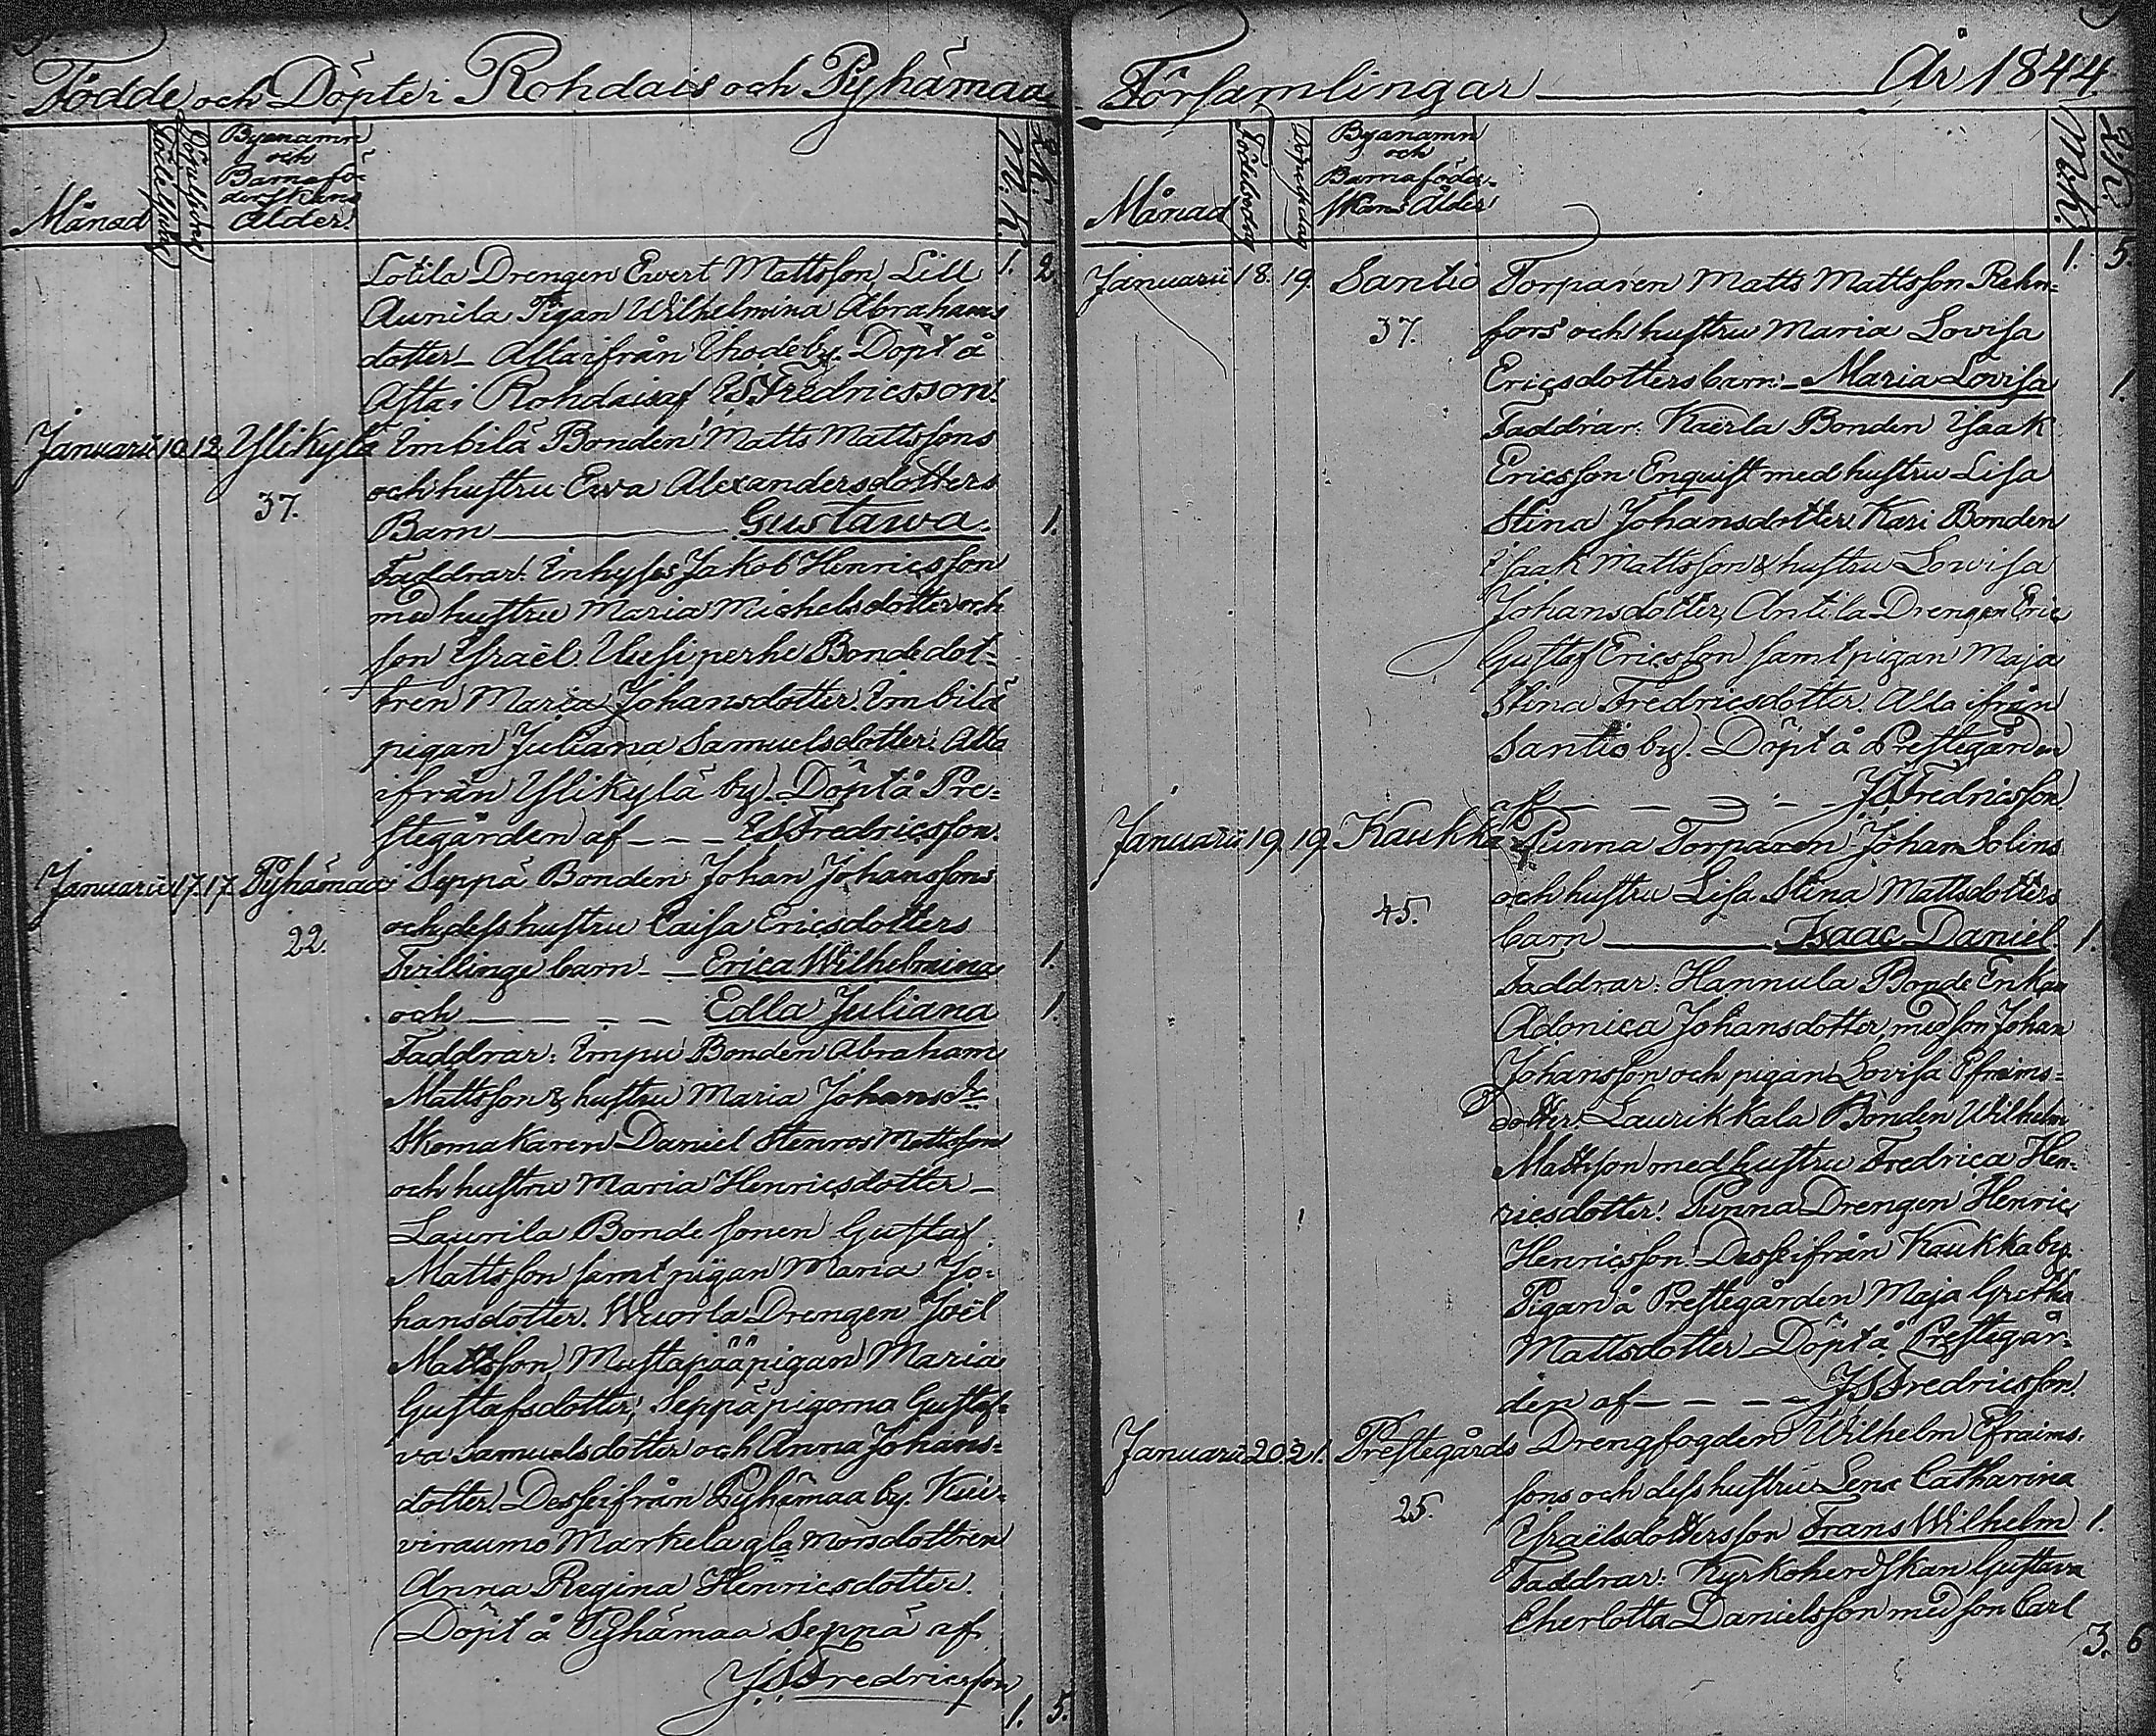 Födde och Döpte i Rohdais och Pyhämaa
Månad
Födelsedag
Döpelsedag
Byanamn
och
Barnafö-
derskans
ålder.
M.K.
Q.K.
1. 2.
Lotila Drengen Evert Mattsson, Lill
Aunila Pigan Wilhelmina Abrahams
dotter. Alla ifrån Ihode by. Döpt å
Asta i Rohdais af JS Fredricsson.
Januarii 10. 12. Ylikylä Imbilä Bonden Matts Mattssons
och hustru Ewa Alexandersdotters
37.
Barn Gustawa. 1.
Faddrar: Inhyses Jakob Henricsson
med hustru Maria Michelsdotter och
son Israël. Uusiperhe Bondedot-
tren Maria Johansdotter. Imbilä
pigan Juliana Samuelsdotter. Alla
ifrån Ylikylä by. Döpt å Pre-
stegården af - - - JS Fredricsson.
Januarii 17. 17. Pyhämaa Seppä Bonden Johan Johanssons
och dess hustru Caisa Ericsdotters
22.
Tvillinge barn - Erica Wilhelmina 1.
och - - - - Edla Juliana 1.
Faddrar: Impu Bonden Abraham
Mattsson & hustru Maria Johansdr
Skomakaren Daniel Stenros Mattsson
och hustru Maria Henricsdotter -
Laurila Bonde sonen Gustaf
Mattsson samt pigan Maria Jo-
hansdotter. Wuorla Drengen Joël
Mattsson, Mustapää pigan Maria
Gustafsdotter, Seppä pigorna Gusta-
va Samuelsdotter och Anna Johans-
dotter. Desse ifrån Pyhämaa by. Kui-
viraumo Markela gla Morsdottren
Anna Regina Henricsdotter.
Döpt å Pyhämaa Seppä af
JS Fredricsson
1. 5.
Församlingar År 1844.
Månad
Födelsedag
Döpelsedag
Byanamn
och
Barnaföder-
skans ålder
M.K.
Q.K.
1. 5.
Januarii 18. 19. Santio Torparen Matts Mattsson Rehn-
fors och hustru Maria Lovisa
37.
Ericsdotters barn - Maria Lovisa 1.
Faddrar: Kaërla Bonden Isaak
Ericsson Enquist med hustru Lisa
Stina Johansdotter, Kari Bonden
Isaak Mattsson & hustru Lowisa
Johansdotter, Antila Drengen Eric
Gustaf Ericsson samt pigan Maja
Stina Fredricsdotter. Alla ifrån
Santio by. Döpt å Prestegården
af - - - - JS Fredricsson
Januarii 19. 19. Kaukka Punna Torparen Johan Solins
och hustru Lisa Stina Mattsdotters
45.
barn Isaac Daniel 1.
Faddrar: Hannula Bonde Enkan
Adonica Johansdotter, med son Johan
Johansson och pigan Lovisa Efraims-
dotter. Laurikkala Bonden Wilhelm
Mattsson med hustru Fredrica Hen-
ricsdotter. Punna Drengen Henric
Henricsson. Desse ifrån Kaukka by.
Pigan å Prestegården Maja Gretha
Mattsdotter. Döpt å Prestegår-
den af - - - - JS Fredricsson.
Januarii 20. 21. Prestegårds Drengfogden Wilhelm Efraims-
sons och dess hustru Lena Catharina
25.
Israëlsdotters son Frans Wilhelm 1.
Faddrar: Kyrkoherdskan Gustava
Cherlotta Danielsson med son Carl
3. 6